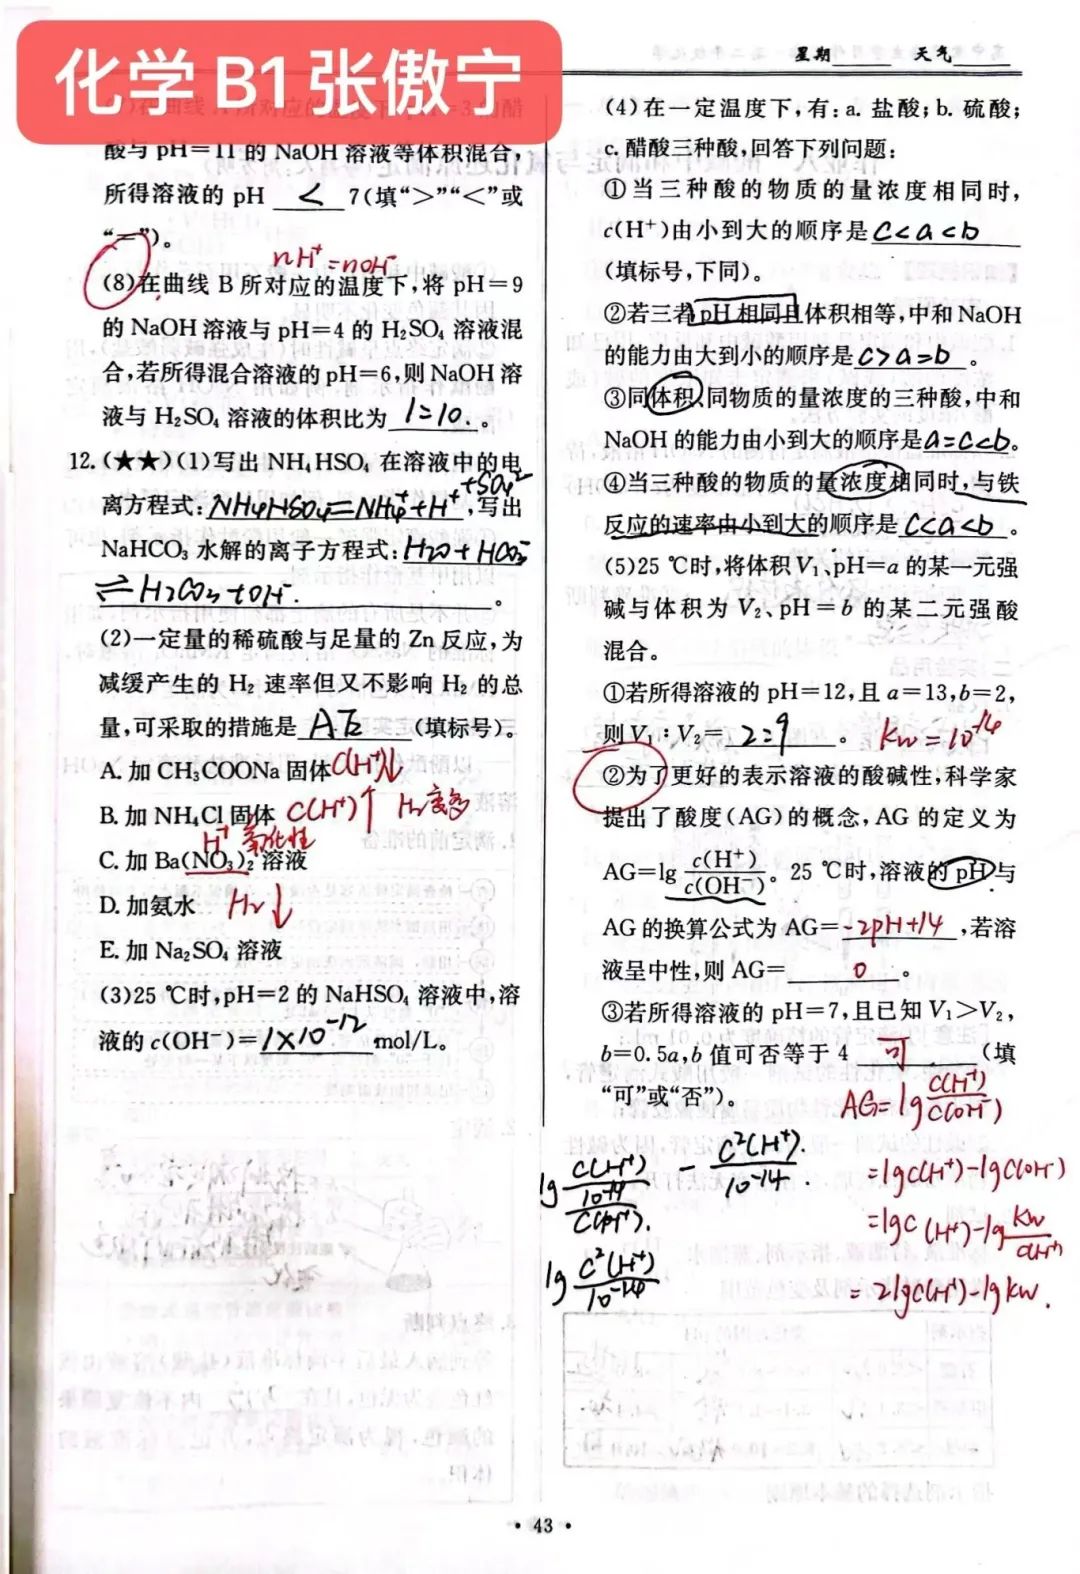 化学 B1 张傲宁
星期 天气
酸与 pH=11 的 NaOH 溶液等体积混合,
所得溶液的 pH < 7(填“>”“<”或
“=”)。
nH⁺=nOH⁻
(8)在曲线 B 所对应的温度下,将 pH=9
的 NaOH 溶液与 pH=4 的 H₂SO₄ 溶液混
合,若所得混合溶液的 pH=6,则 NaOH 溶
液与 H₂SO₄ 溶液的体积比为 1:10. 。
12.(★★)(1)写出 NH₄HSO₄ 在溶液中的电
离方程式: NH₄HSO₄=NH₄⁺+H⁺+SO₄²⁻ ,写出
NaHCO₃ 水解的离子方程式: H₂O+HCO₃⁻
⇌H₂CO₃+OH⁻. 。
(2)一定量的稀硫酸与足量的 Zn 反应,为
减缓产生的 H₂ 速率但又不影响 H₂ 的总
量,可采取的措施是 AE (填标号)。
A. 加 CH₃COONa 固体 C(H⁺)↓
B. 加 NH₄Cl 固体 C(H⁺)↑ H₂变多
H⁺ 氧化性
C. 加 Ba(NO₃)₂ 溶液
D. 加氨水 H₂↓
E. 加 Na₂SO₄ 溶液
(3)25 ℃时,pH=2 的 NaHSO₄ 溶液中,溶
液的 c(OH⁻)=1×10⁻¹² mol/L。
(4)在一定温度下,有:a. 盐酸;b. 硫酸;
c. 醋酸三种酸,回答下列问题:
①当三种酸的物质的量浓度相同时,
c(H⁺)由小到大的顺序是 c<a<b
(填标号,下同)。
②若三者 pH 相同且体积相等,中和 NaOH
的能力由大到小的顺序是 c>a=b 。
③同体积、同物质的量浓度的三种酸,中和
NaOH 的能力由小到大的顺序是 a=c<b 。
④当三种酸的物质的量浓度相同时,与铁
反应的速率由小到大的顺序是 c<a<b 。
(5)25 ℃时,将体积 V₁、pH=a 的某一元强
碱与体积为 V₂、pH=b 的某二元强酸
混合。
①若所得溶液的 pH=12,且 a=13,b=2,
则 V₁∶V₂= 2:9 。 Kw=10⁻¹⁴
②为了更好的表示溶液的酸碱性,科学家
提出了酸度(AG)的概念,AG 的定义为
AG=lg c(H⁺)/c(OH⁻)。25 ℃时,溶液的 pH 与
AG 的换算公式为 AG= -2pH+14 ,若溶
液呈中性,则 AG= 0 。
③若所得溶液的 pH=7,且已知 V₁>V₂,
b=0.5a,b 值可否等于 4 可 (填
“可”或“否”)。
AG=lg C(H⁺)/C(OH⁻)
=lgC(H⁺)-lgC(OH⁻)
=lgC(H⁺)-lg Kw/C(H⁺)
=2lgC(H⁺)-lgKw.
lg C(H⁺)/(10⁻¹⁴/C(H⁺)). - C²(H⁺)/10⁻¹⁴.
lg C²(H⁺)/10⁻¹⁴
· 43 ·